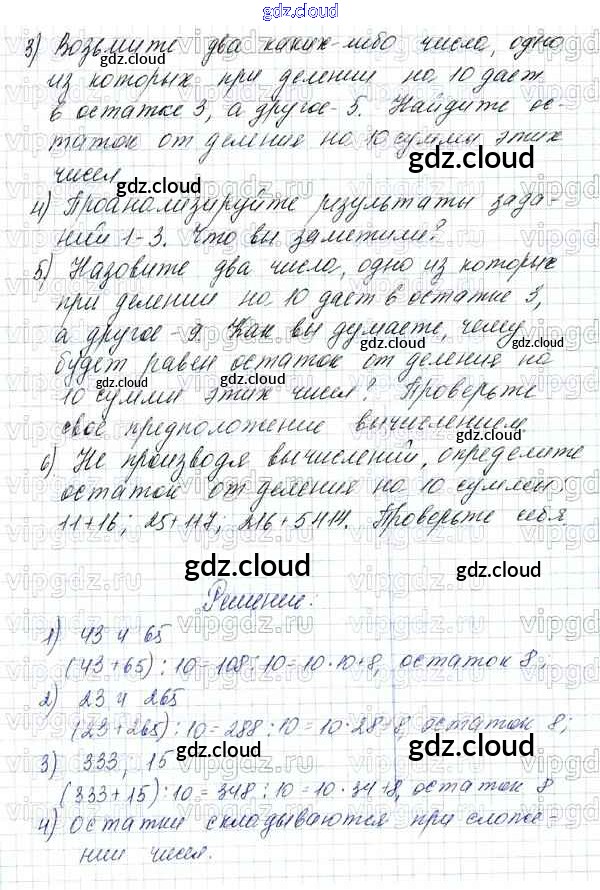 gdz.cloud
3) Возьмите два каких-либо числа, одно
из которых при делении на 10 дает
в остатке 3, а другое - 5. Найдите ос-
таток от деления на 10 суммы этих
чисел.
gdz.cloud
gdz.cloud
4) Проанализируйте результаты зада-
ний 1-3. Что вы заметили?
gdz.cloud
5) Назовите два числа, одно из которых
при делении на 10 дает в остатке 3,
а другое - 9. Как вы думаете, чему
gdz.cloud
будет равен остаток от деления на
gdz.cloud gdz.cloud
10 суммы этих чисел? Проверьте
свое предположение вычислением
gdz.cloud
6) Не производя вычислений, определите
остаток от деления на 10 суммы:
11+16; 25+117; 216+5414. Проверьте себя
gdz.cloud gdz.cloud
Решение:
1) 43 и 65
(43+65):10=108:10=10·10+8, остаток 8;
2) 23 и 265
(23+265):10=288:10=10·28+8, остаток 8;
gdz.cloud gdz.cloud
3) 333; 15
(333+15):10=348:10=10·34+8, остаток 8
4) остатки складываются при сложе-
нии чисел.
gdz.cloud